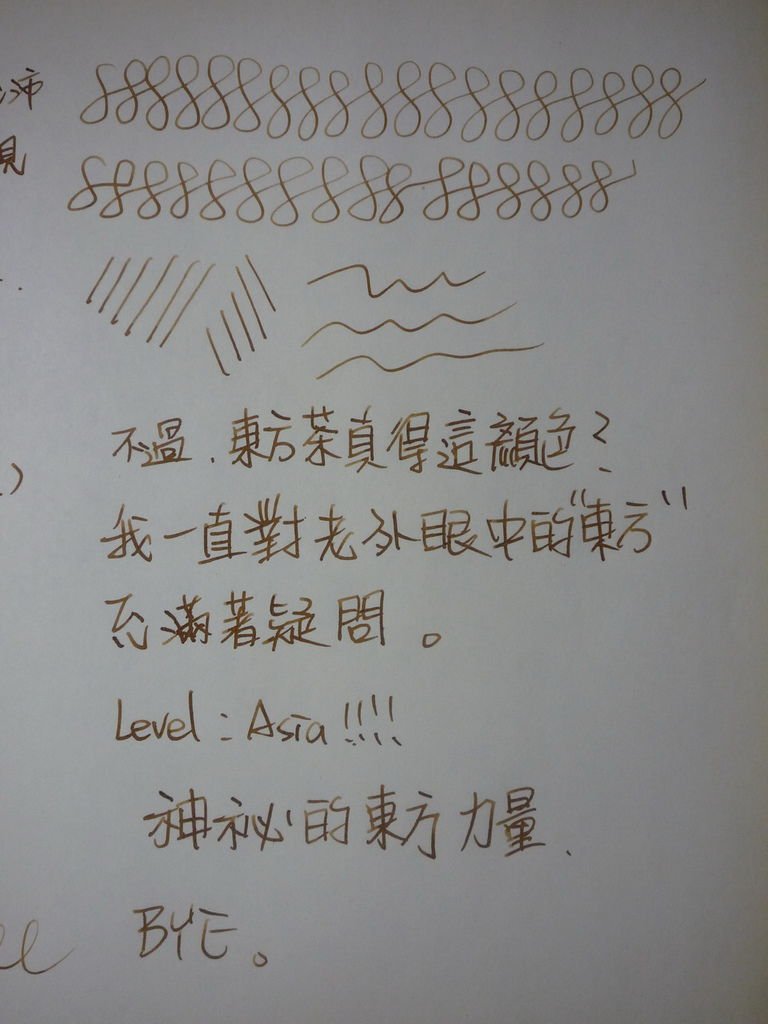 沛
見
不過.東方茶真得這顏色?
我一直對老外眼中的"東方"
充滿著疑問。
Level : Asia !!!!
神祕的東方力量.
BYE。